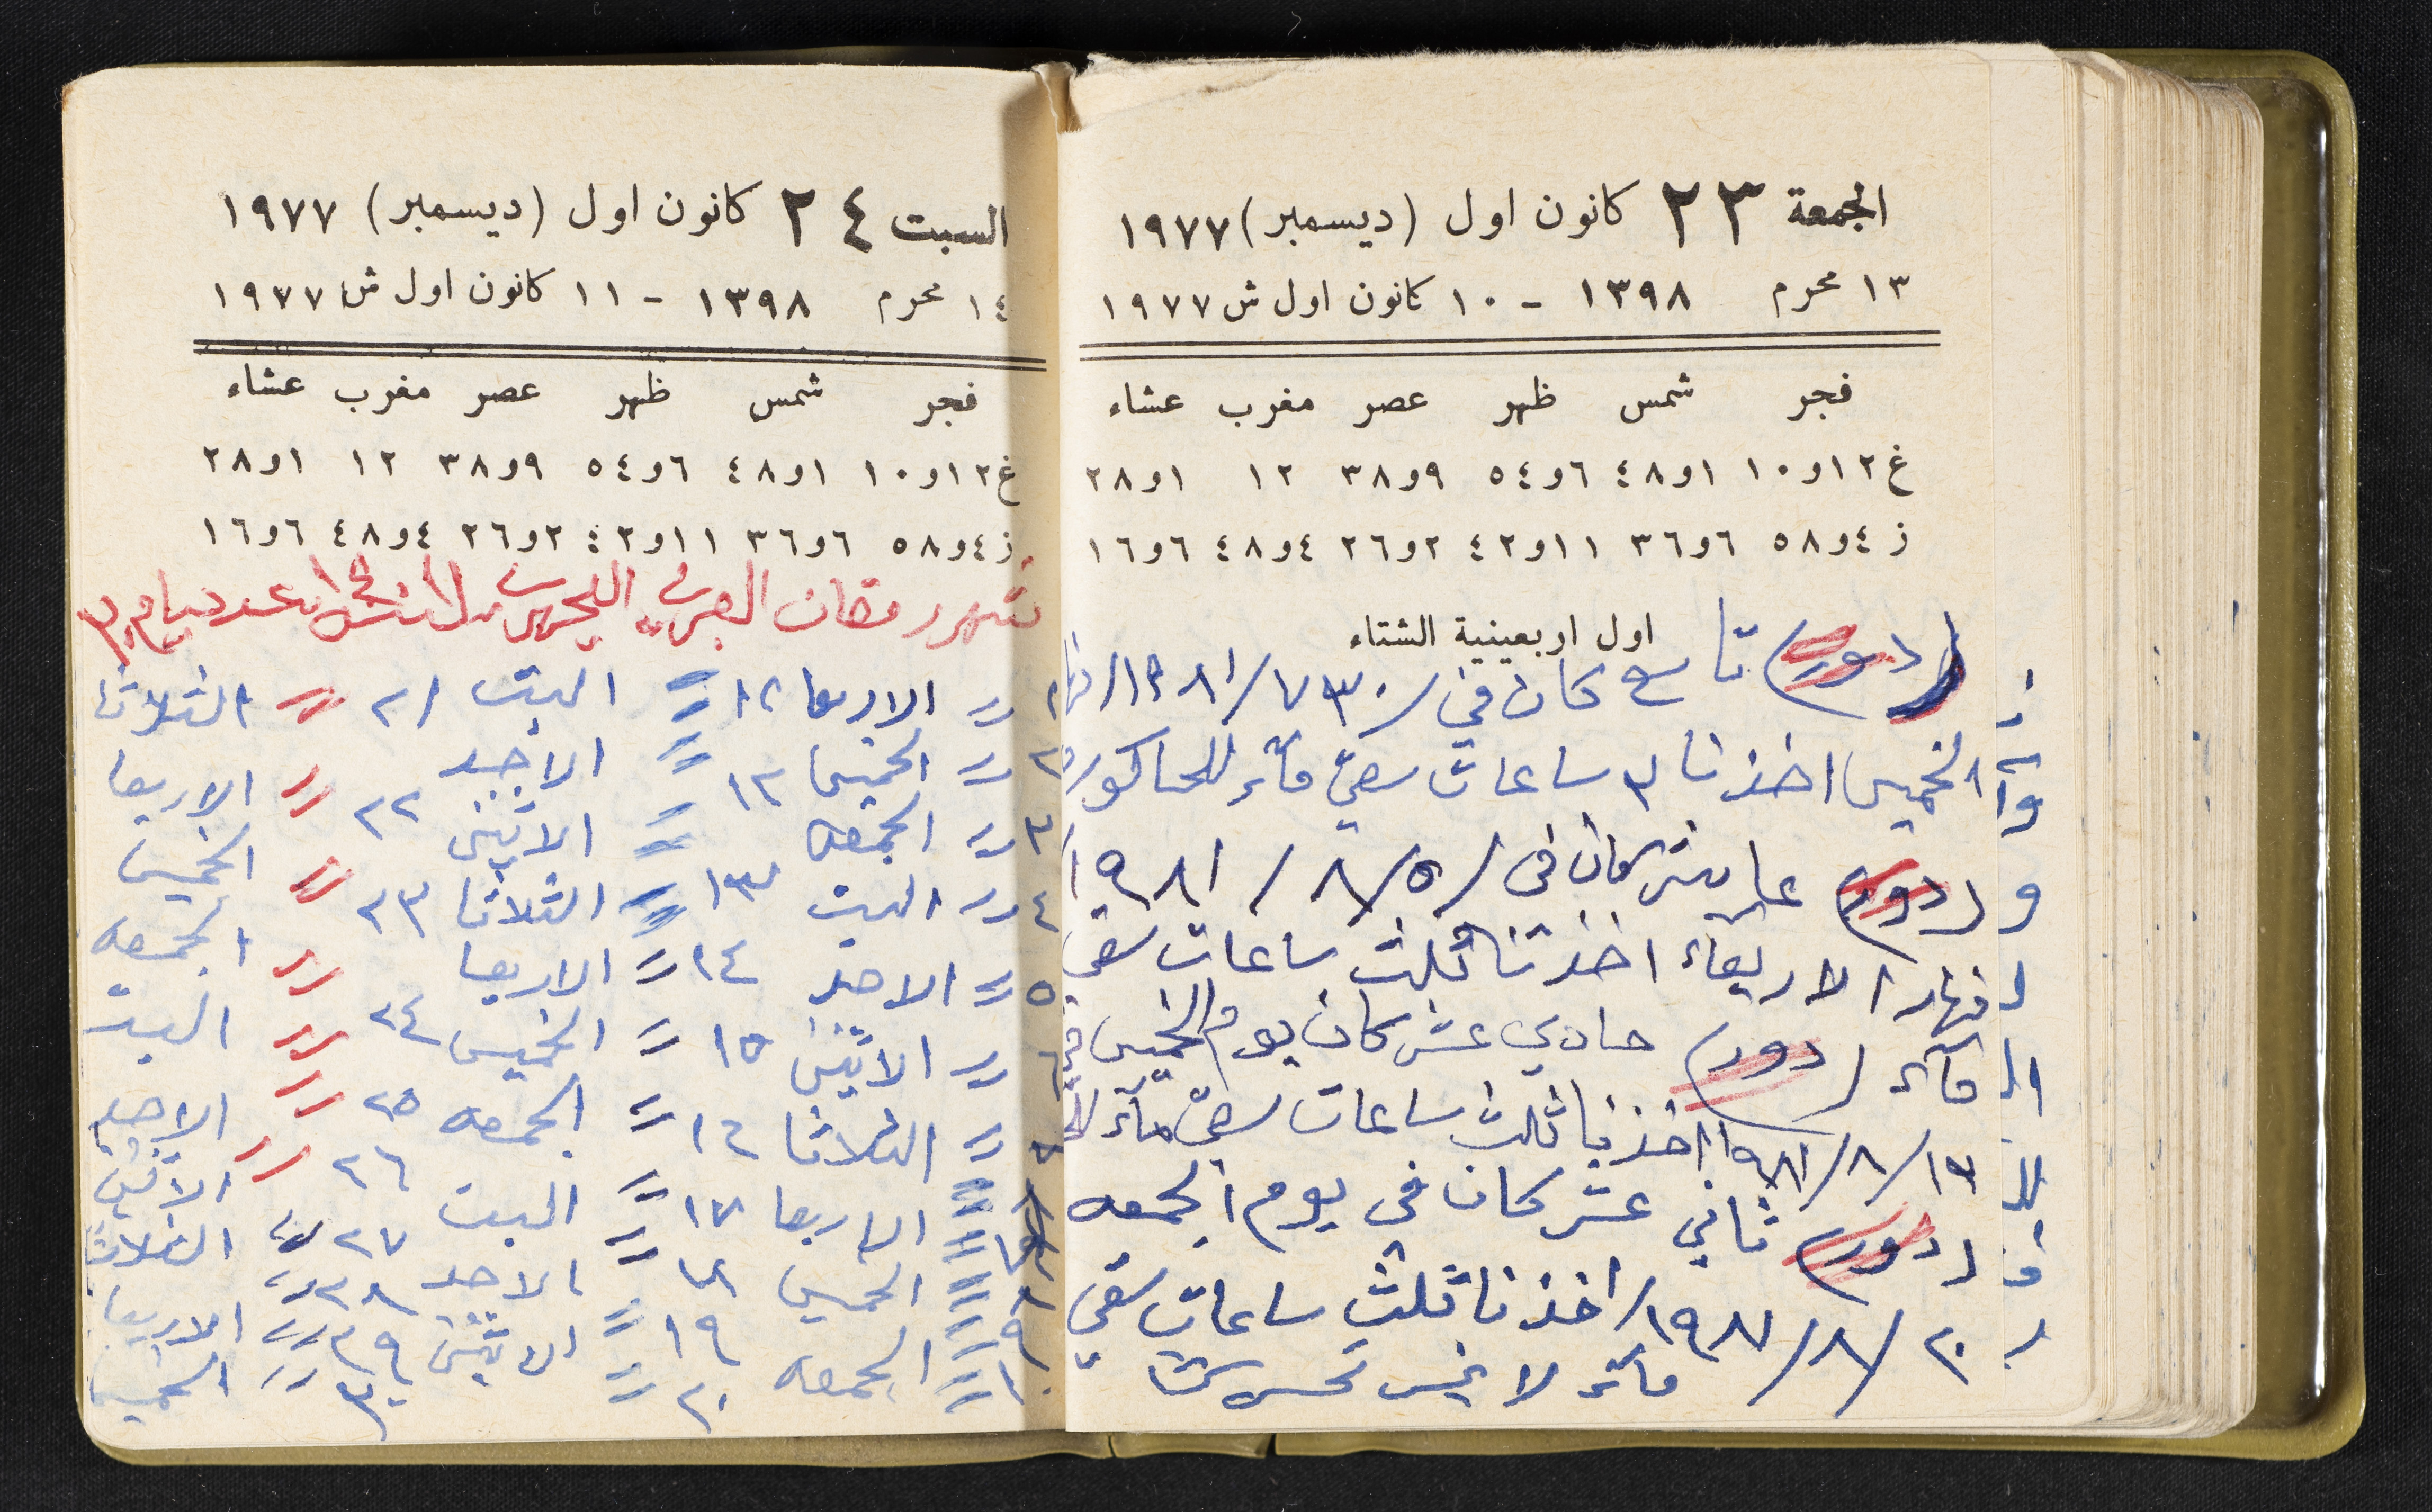 الجمعة ٢٣ كانون اول (ديسمبر) ١٩٧٧
١٣ محرم ١٣٩٨ - ١٠ كانون اول ش ١٩٧٧
فجر شمس ظهر عصر مغرب عشاء
غ ١٢و١٠ ١و٤٨ ٦و٥٤ ٩و٣٨ ١٢ ١و٢٨
ز ٤و٥٨ ٦و٣٦ ١١و٤٢ ٢و٢٦ ٤و٤٨ ٦و١٦
اول اربعينية الشتاء
(دور) تاسع كان في ٣٠/٧/١٩٨١/
الخميس اخذنا ٣ ساعات سقي مآء للحاكوره
(دور) عاشر كان في ٥/٨/١٩٨١
نهار الاربعاء اخذنا ثلث ساعات سقي
مآء (دور) حادي عشر كان يوم الخميس في
١٣/٨/١٩٨١ اخذنا ثلث ساعات سقي مآء
(دور) ثاني عشر كان في يوم الجمعه
٢٠/٨/١٩٨١/ اخذنا ثلث ساعات سقي
مآء لا غير
السبت ٢٤ كانون اول (ديسمبر) ١٩٧٧
١٤ محرم ١٣٩٨ - ١١ كانون اول ش ١٩٧٧
فجر شمس ظهر عصر مغرب عشاء
غ ١٢و١٠ ١و٤٨ ٦و٥٤ ٩و٣٨ ١٢ ١و٢٨
ز ٤و٥٨ ٦و٣٦ ١١و٤٢ ٢و٢٦ ٤و٤٨ ٦و١٦
شهر رمضان
الاربعا ١٢ = السبت ٢١ = الثلاثا
٢ = الخميس ١٢ = الاحد ٢٢ = الاربعا
٣ = الجمعه ١٣ = الاثنين ٢٣ = الخميس
٤ = السبت ١٤ = الثلاثا ٢٤ = الجمعه
٥ = الاحد ١٥ = الاربعا ٢٥ = السبت
٦ = الاثنين ١٦ = الخميس ٢٦ = الاحد
= الثلاثا ١٧ = الجمعه ٢٧ = الاثنين
= الاربعا ١٨ = السبت ٢٨ = الثلاثا
٩ = الخميس ١٩ = الاحد ٢٩ = الاربعا
١٠ = الجمعه ٢٠ = الاثنين ٣٠ = الخميس